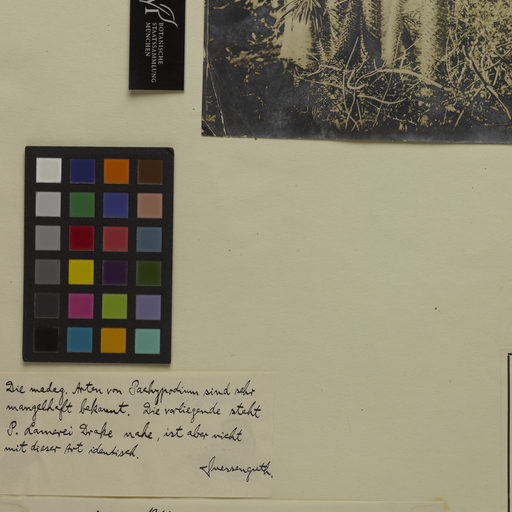 BOTANISCHE
STAATSSAMMLUNG
MÜNCHEN
Die madag. Arten von Pachypodium sind sehr
mangelhaft bekannt. Die vorliegende steht
P. Lamerei Drake nahe, ist aber nicht
mit dieser Art identisch.
Suessenguth.